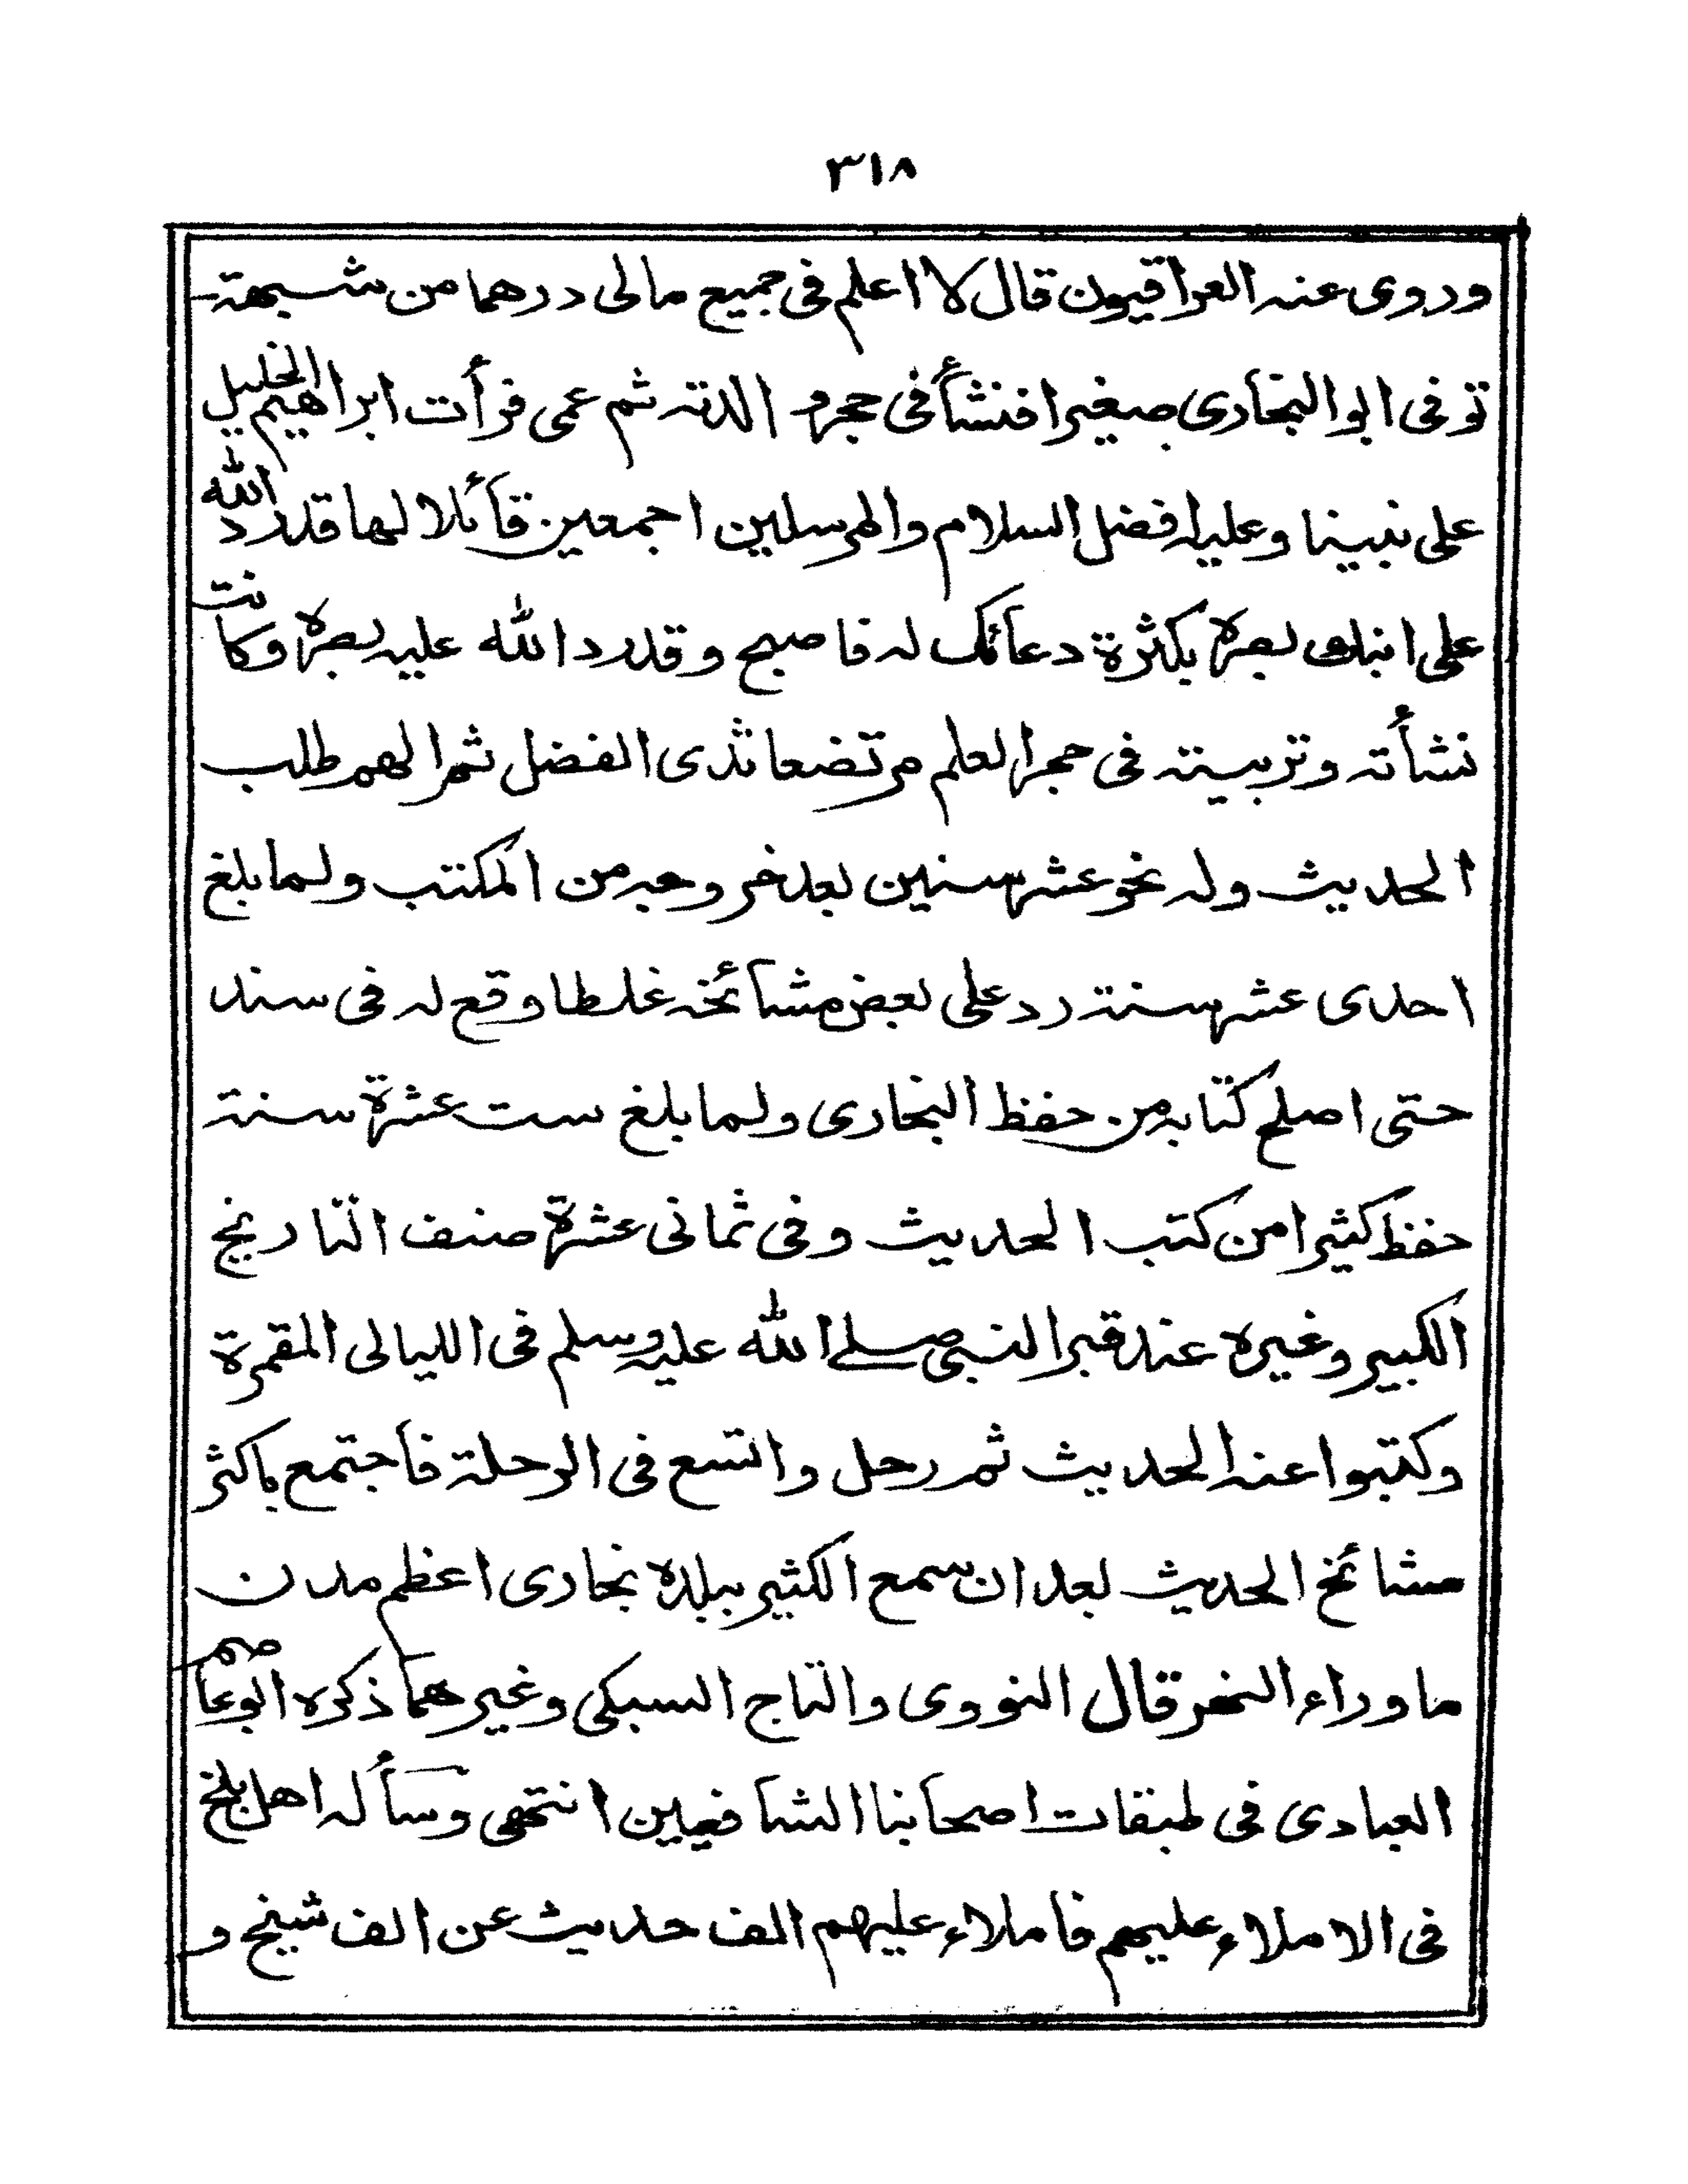 ٣١٨
وروى عنه العراقيون قال لا اعلم فى جميع مالى درهما من شبهة
توفى ابو البخارى صغيرا فنشأ فى حجر والدته ثم عمى فرأت ابراهيم الخليل
على نبينا وعليه افضل السلام والمرسلين اجمعين قائلا لها قد رد الله
على ابنك بصره بكثرة دعائك له فاصبح وقد رد الله عليه بصره وكانت
نشأته وتربيته فى حجر العلم مرتضعا ثدى الفضل ثم الهم طلب
الحديث وله نحو عشر سنين بعد خروجه من المكتب ولما بلغ
احدى عشر سنة رد على بعض مشائخه غلطا وقع له فى سند
حتى اصلح كتابه من حفظ البخارى ولما بلغ ست عشرة سنة
حفظ كثيرا من كتب الحديث وفى ثمانى عشرة صنف التاريخ
الكبير وغيره عند قبر النبى صلى الله عليه وسلم فى الليالى المقمرة
وكتبوا عنه الحديث ثم رحل واتسع فى الرحلة فاجتمع باكثر
مشائخ الحديث بعد ان سمع الكثير ببلده بخارى اعظم مدن
ما وراء النهر قال النووى والتاج السبكى وغيرهما ذكره ابو عاصم
العبادى فى طبقات اصحابنا الشافعيين انتهى وسأله اهل بلخ
فى الاملاء عليهم فاملاء عليهم الف حديث عن الف شيخ و